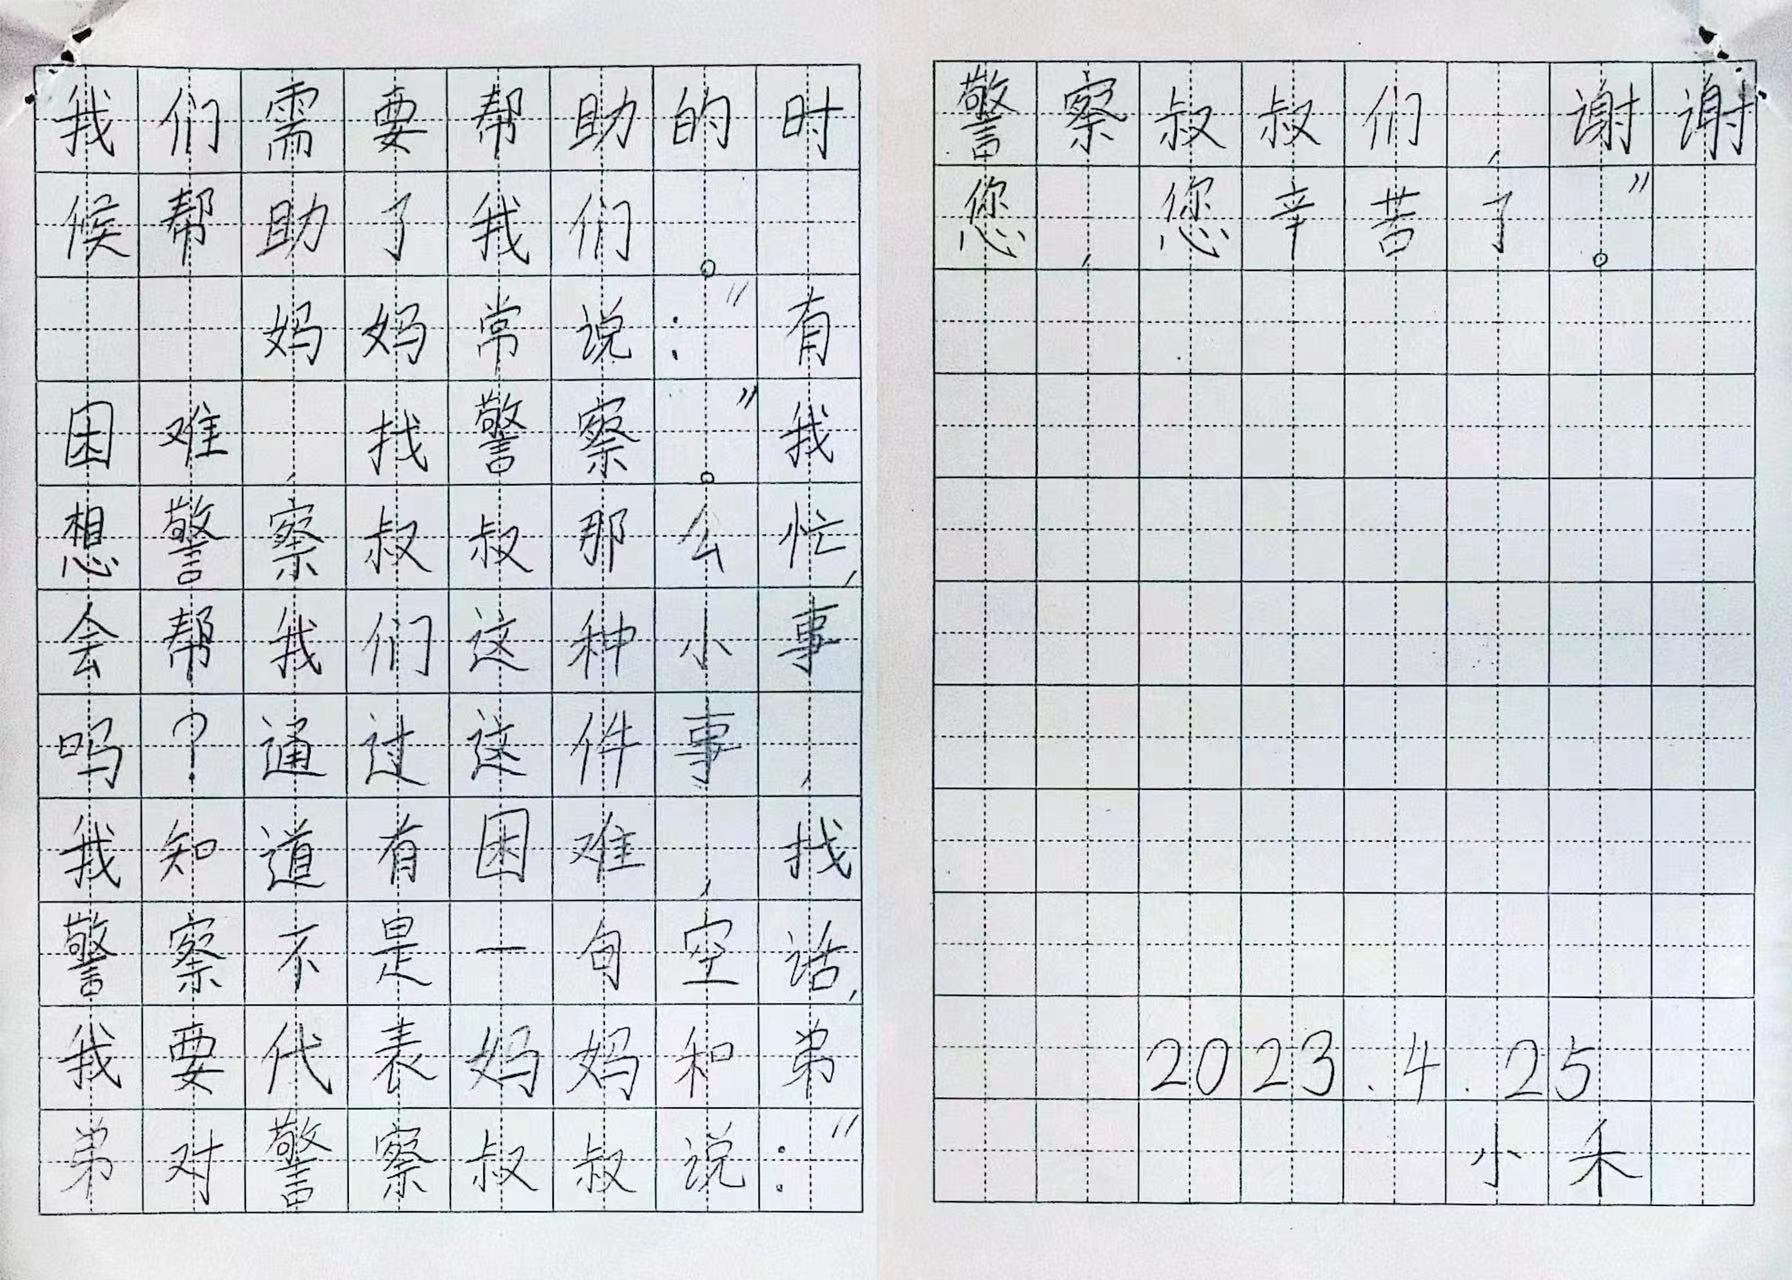 我们需要帮助的时
候帮助了我们。
妈妈常说：“有
困难，找警察。”我
想警察叔叔那么忙，
会帮我们这种小事
吗？通过这件事，
我知道有困难，找
警察不是一句空话，
我要代表妈妈和弟
弟对警察叔叔说：“
警察叔叔们，谢谢
您，您辛苦了。”
2023.4.25
小禾